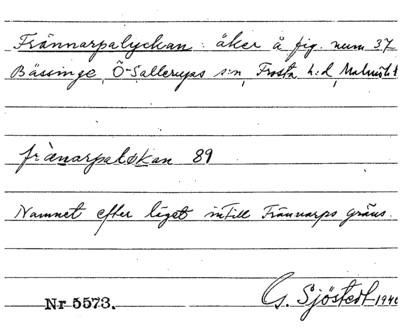 Frännarpalyckan: åker å fig. num 37
Bässinge, Ö-Sallerups s:n, Frosta h:d, Malmöh
frànarpalykan 89
Namnet efter läget intill Frännarps gräns.
Nr 5573. G. Sjöstedt 1946